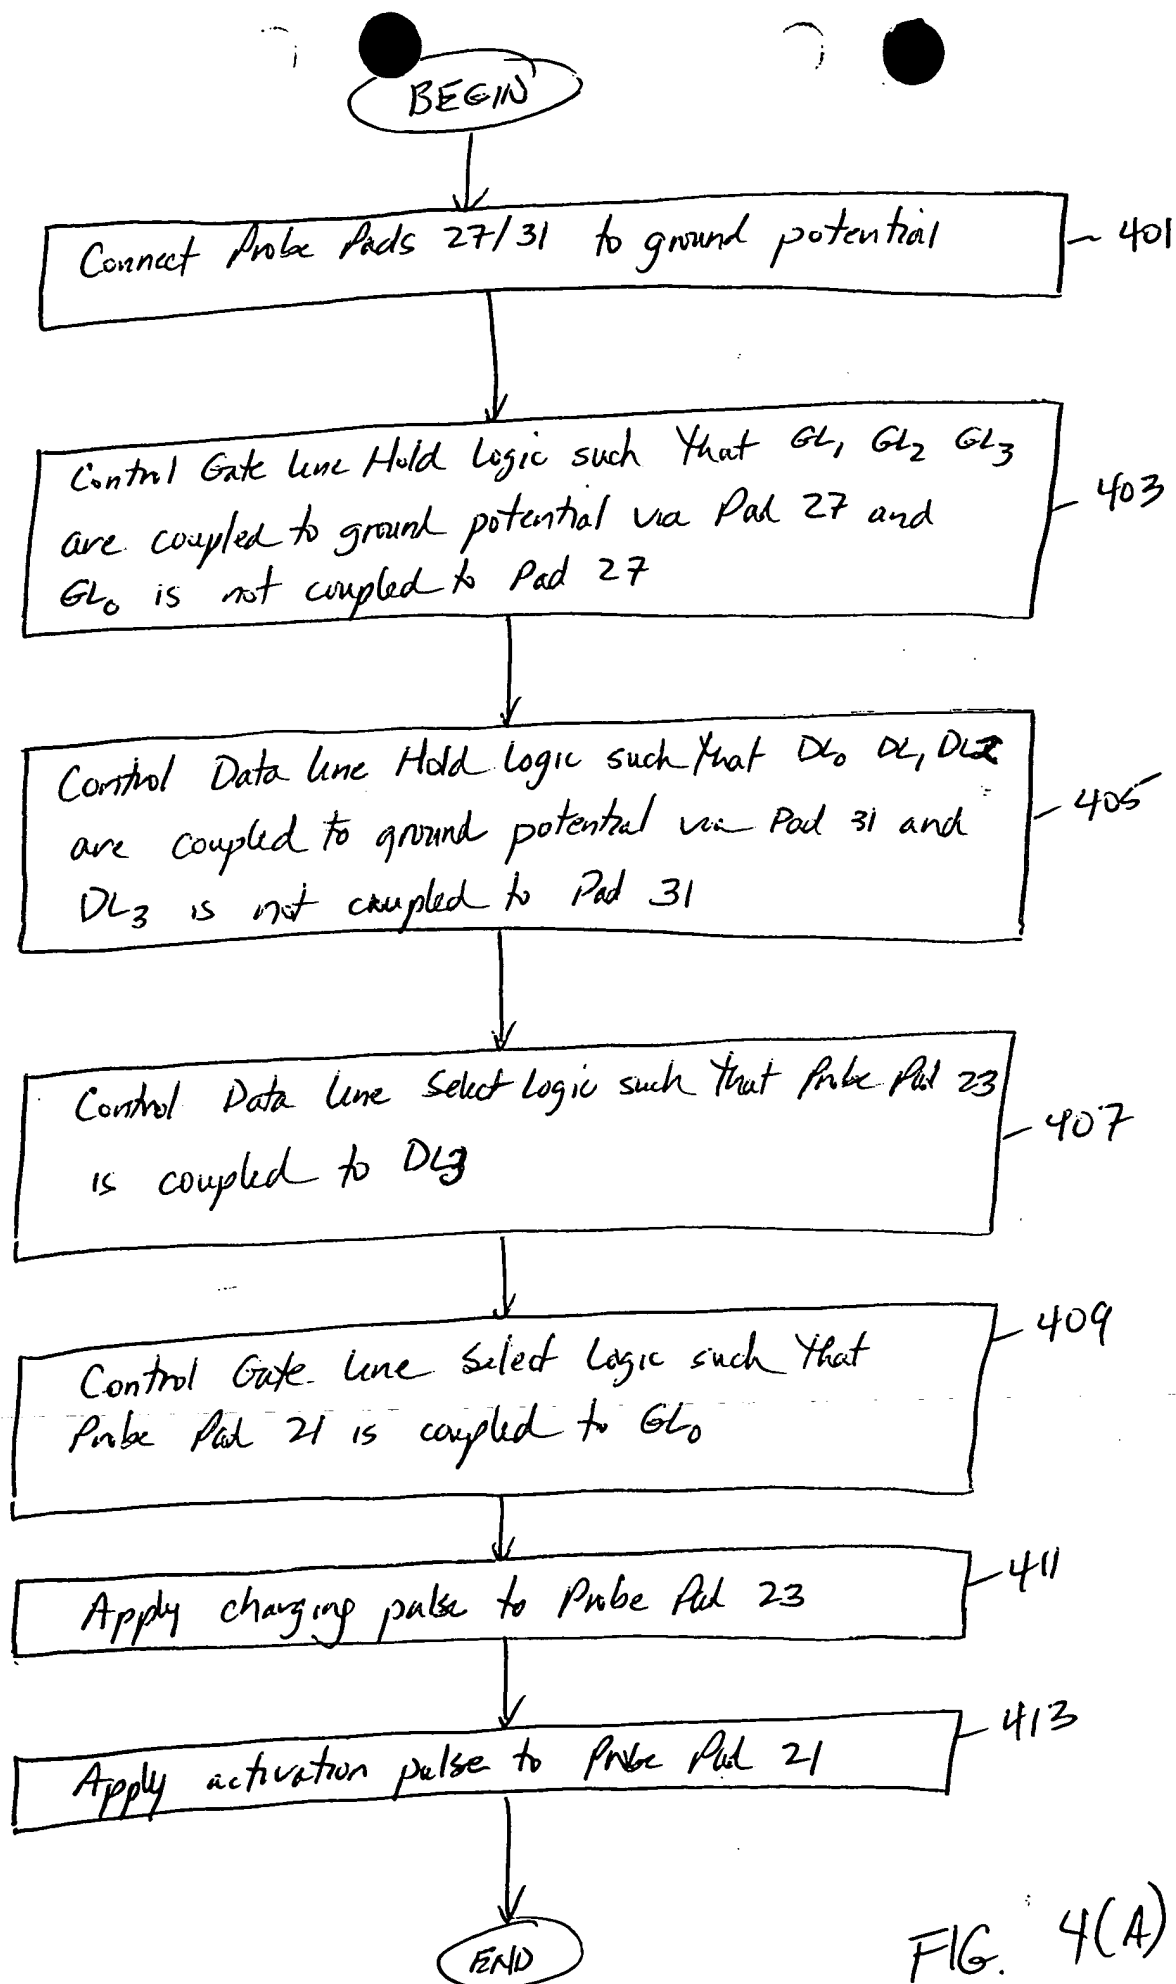 BEGIN
Connect Probe Pads 27/31 to ground potential
401
Control Gate Line Hold Logic such that GL1 GL2 GL3
are coupled to ground potential via Pad 27 and
GL0 is not coupled to Pad 27
403
Control Data Line Hold Logic such that DL0 DL1 DL2
are coupled to ground potential via Pad 31 and
DL3 is not coupled to Pad 31
405
Control Data Line Select Logic such that Probe Pad 23
is coupled to DL3
407
Control Gate Line Select Logic such that
Probe Pad 21 is coupled to GL0
409
Apply charging pulse to Probe Pad 23
411
Apply activation pulse to Probe Pad 21
413
END
FIG. 4(A)